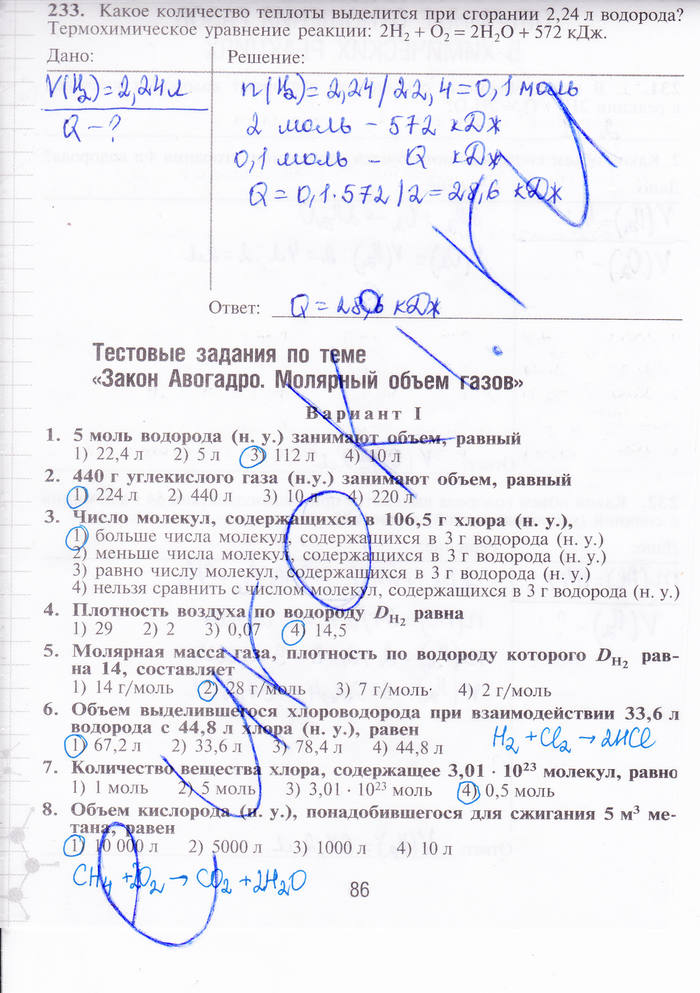 233. Какое количество теплоты выделится при сгорании 2,24 л водорода?
Термохимическое уравнение реакции: 2H₂ + O₂ = 2H₂O + 572 кДж.
Дано: Решение:
V(H₂)=2,24л n(H₂)=2,24/22,4=0,1 моль
Q-? 2 моль - 572 кДж
0,1 моль - Q кДж
Q=0,1·572/2=28,6 кДж
Ответ: Q=28,6 кДж
Тестовые задания по теме
«Закон Авогадро. Молярный объем газов»
Вариант I
1. 5 моль водорода (н. у.) занимают объем, равный
1) 22,4 л 2) 5 л 3) 112 л 4) 10 л
2. 440 г углекислого газа (н.у.) занимают объем, равный
1) 224 л 2) 440 л 3) 10 л 4) 220 л
3. Число молекул, содержащихся в 106,5 г хлора (н. у.),
1) больше числа молекул, содержащихся в 3 г водорода (н. у.)
2) меньше числа молекул, содержащихся в 3 г водорода (н. у.)
3) равно числу молекул, содержащихся в 3 г водорода (н. у.)
4) нельзя сравнить с числом молекул, содержащихся в 3 г водорода (н. у.)
4. Плотность воздуха по водороду D H₂ равна
1) 29 2) 2 3) 0,07 4) 14,5
5. Молярная масса газа, плотность по водороду которого D H₂ рав-
на 14, составляет
1) 14 г/моль 2) 28 г/моль 3) 7 г/моль 4) 2 г/моль
6. Объем выделившегося хлороводорода при взаимодействии 33,6 л
водорода с 44,8 л хлора (н. у.), равен
1) 67,2 л 2) 33,6 л 3) 78,4 л 4) 44,8 л H₂+Cl₂→2HCl
7. Количество вещества хлора, содержащее 3,01 · 10²³ молекул, равно
1) 1 моль 2) 5 моль 3) 3,01 · 10²³ моль 4) 0,5 моль
8. Объем кислорода (н. у.), понадобившегося для сжигания 5 м³ ме-
тана, равен
1) 10 000 л 2) 5000 л 3) 1000 л 4) 10 л
CH₄+2O₂→CO₂+2H₂O
86